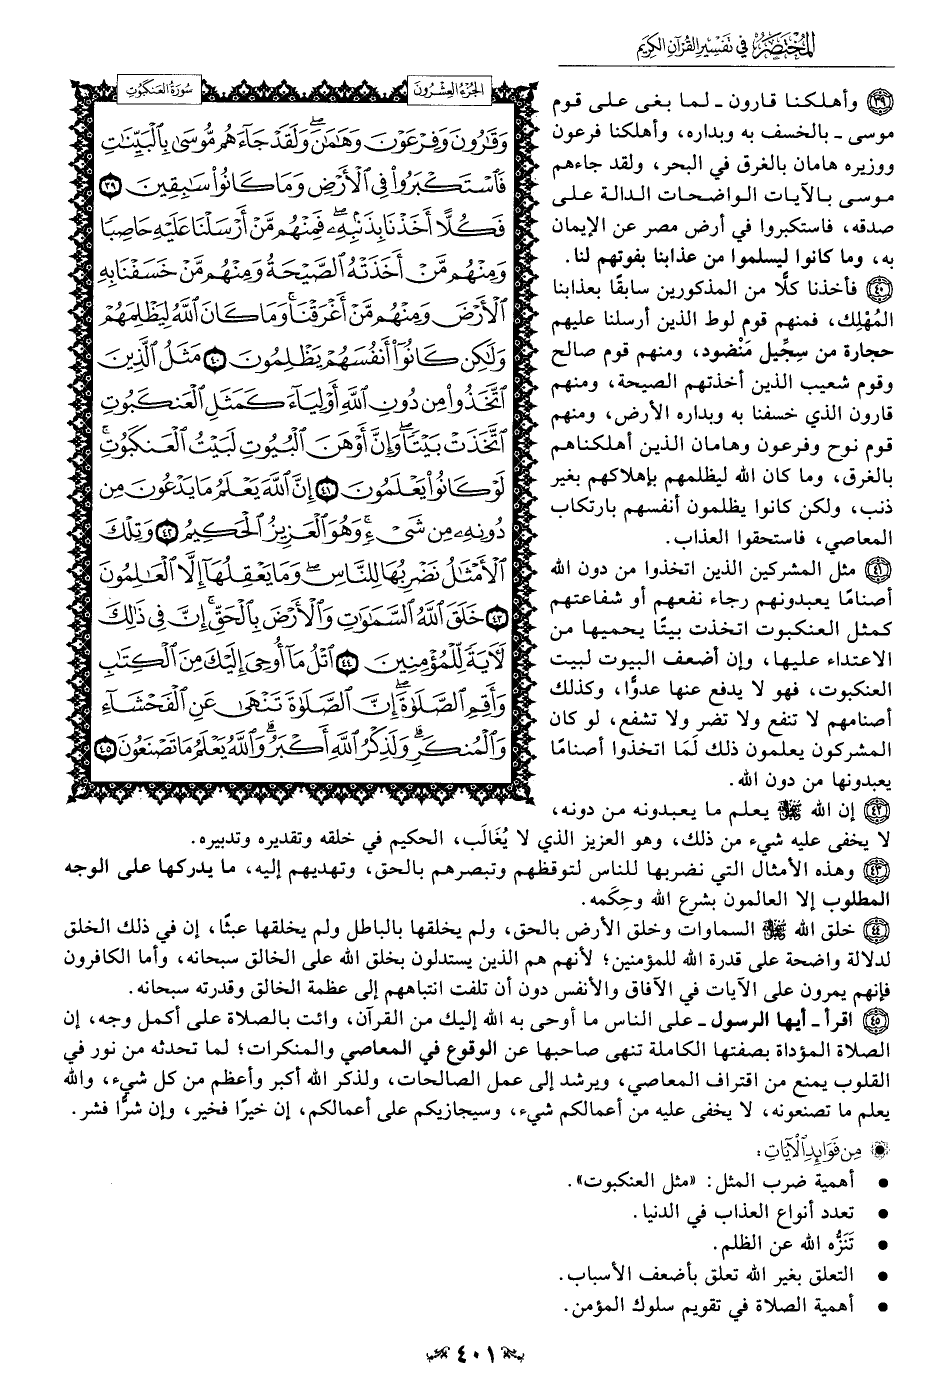 المُخْتَصَرُ فِي تَفْسِيرِ القُرْآنِ الكَرِيمِ
الجُزْءُ العِشْرُونَ
سُورَةُ العَنكَبُوتِ
وَقَٰرُونَ وَفِرْعَوْنَ وَهَٰمَٰنَۖ وَلَقَدْ جَآءَهُم مُّوسَىٰ بِٱلْبَيِّنَٰتِ
فَٱسْتَكْبَرُوا۟ فِى ٱلْأَرْضِ وَمَا كَانُوا۟ سَٰبِقِينَ ٣٩
فَكُلًّا أَخَذْنَا بِذَنۢبِهِۦۖ فَمِنْهُم مَّنْ أَرْسَلْنَا عَلَيْهِ حَاصِبًا
وَمِنْهُم مَّنْ أَخَذَتْهُ ٱلصَّيْحَةُ وَمِنْهُم مَّنْ خَسَفْنَا بِهِ
ٱلْأَرْضَ وَمِنْهُم مَّنْ أَغْرَقْنَاۚ وَمَا كَانَ ٱللَّهُ لِيَظْلِمَهُمْ
وَلَٰكِن كَانُوٓا۟ أَنفُسَهُمْ يَظْلِمُونَ ٤٠ مَثَلُ ٱلَّذِينَ
ٱتَّخَذُوا۟ مِن دُونِ ٱللَّهِ أَوْلِيَآءَ كَمَثَلِ ٱلْعَنكَبُوتِ
ٱتَّخَذَتْ بَيْتًاۖ وَإِنَّ أَوْهَنَ ٱلْبُيُوتِ لَبَيْتُ ٱلْعَنكَبُوتِۚ
لَوْ كَانُوا۟ يَعْلَمُونَ ٤١ إِنَّ ٱللَّهَ يَعْلَمُ مَا يَدْعُونَ مِن
دُونِهِۦ مِن شَىْءٍۚ وَهُوَ ٱلْعَزِيزُ ٱلْحَكِيمُ ٤٢ وَتِلْكَ
ٱلْأَمْثَٰلُ نَضْرِبُهَا لِلنَّاسِۖ وَمَا يَعْقِلُهَآ إِلَّا ٱلْعَٰلِمُونَ
٤٣ خَلَقَ ٱللَّهُ ٱلسَّمَٰوَٰتِ وَٱلْأَرْضَ بِٱلْحَقِّۚ إِنَّ فِى ذَٰلِكَ
لَءَايَةً لِّلْمُؤْمِنِينَ ٤٤ ٱتْلُ مَآ أُوحِىَ إِلَيْكَ مِنَ ٱلْكِتَٰبِ
وَأَقِمِ ٱلصَّلَوٰةَۖ إِنَّ ٱلصَّلَوٰةَ تَنْهَىٰ عَنِ ٱلْفَحْشَآءِ
وَٱلْمُنكَرِۗ وَلَذِكْرُ ٱللَّهِ أَكْبَرُۗ وَٱللَّهُ يَعْلَمُ مَا تَصْنَعُونَ ٤٥
٣٩ وأهلكنا قارون ـ لما بغى على قوم
موسى ـ بالخسف به وبداره، وأهلكنا فرعون
ووزيره هامان بالغرق في البحر، ولقد جاءهم
موسى بالآيات الواضحات الدالة على
صدقه، فاستكبروا في أرض مصر عن الإيمان
به، وما كانوا ليسلموا من عذابنا بفوتهم لنا.
٤٠ فأخذنا كلًّا من المذكورين سابقًا بعذابنا
المُهْلِك، فمنهم قوم لوط الذين أرسلنا عليهم
حجارة من سِجِّيل مَنْضود، ومنهم قوم صالح
وقوم شعيب الذين أخذتهم الصيحة، ومنهم
قارون الذي خسفنا به وبداره الأرض، ومنهم
قوم نوح وفرعون وهامان الذين أهلكناهم
بالغرق، وما كان الله ليظلمهم بإهلاكهم بغير
ذنب، ولكن كانوا يظلمون أنفسهم بارتكاب
المعاصي، فاستحقوا العذاب.
٤١ مثل المشركين الذين اتخذوا من دون الله
أصنامًا يعبدونهم رجاء نفعهم أو شفاعتهم
كمثل العنكبوت اتخذت بيتًا يحميها من
الاعتداء عليها، وإن أضعف البيوت لبيت
العنكبوت، فهو لا يدفع عنها عدوًّا، وكذلك
أصنامهم لا تنفع ولا تضر ولا تشفع، لو كان
المشركون يعلمون ذلك لَمَا اتخذوا أصنامًا
يعبدونها من دون الله.
٤٢ إن الله ﷻ يعلم ما يعبدونه من دونه،
لا يخفى عليه شيء من ذلك، وهو العزيز الذي لا يُغَالَب، الحكيم في خلقه وتقديره وتدبيره.
٤٣ وهذه الأمثال التي نضربها للناس لتوقظهم وتبصرهم بالحق، وتهديهم إليه، ما يدركها على الوجه
المطلوب إلا العالمون بشرع الله وحِكَمه.
٤٤ خلق الله ﷻ السماوات وخلق الأرض بالحق، ولم يخلقها بالباطل ولم يخلقها عبثًا، إن في ذلك الخلق
لدلالة واضحة على قدرة الله للمؤمنين؛ لأنهم هم الذين يستدلون بخلق الله على الخالق سبحانه، وأما الكافرون
فإنهم يمرون على الآيات في الآفاق والأنفس دون أن تلفت انتباههم إلى عظمة الخالق وقدرته سبحانه.
٤٥ اقرأ ـ أيها الرسول ـ على الناس ما أوحى به الله إليك من القرآن، وائت بالصلاة على أكمل وجه، إن
الصلاة المؤداة بصفتها الكاملة تنهى صاحبها عن الوقوع في المعاصي والمنكرات؛ لما تحدثه من نور في
القلوب يمنع من اقتراف المعاصي، ويرشد إلى عمل الصالحات، ولذكر الله أكبر وأعظم من كل شيء، والله
يعلم ما تصنعونه، لا يخفى عليه من أعمالكم شيء، وسيجازيكم على أعمالكم، إن خيرًا فخير، وإن شرًّا فشر.
مِن فَوَائِدِ الآيَاتِ:
• أهمية ضرب المثل: «مثل العنكبوت».
• تعدد أنواع العذاب في الدنيا.
• تَنَزُّه الله عن الظلم.
• التعلق بغير الله تعلق بأضعف الأسباب.
• أهمية الصلاة في تقويم سلوك المؤمن.
٤٠١